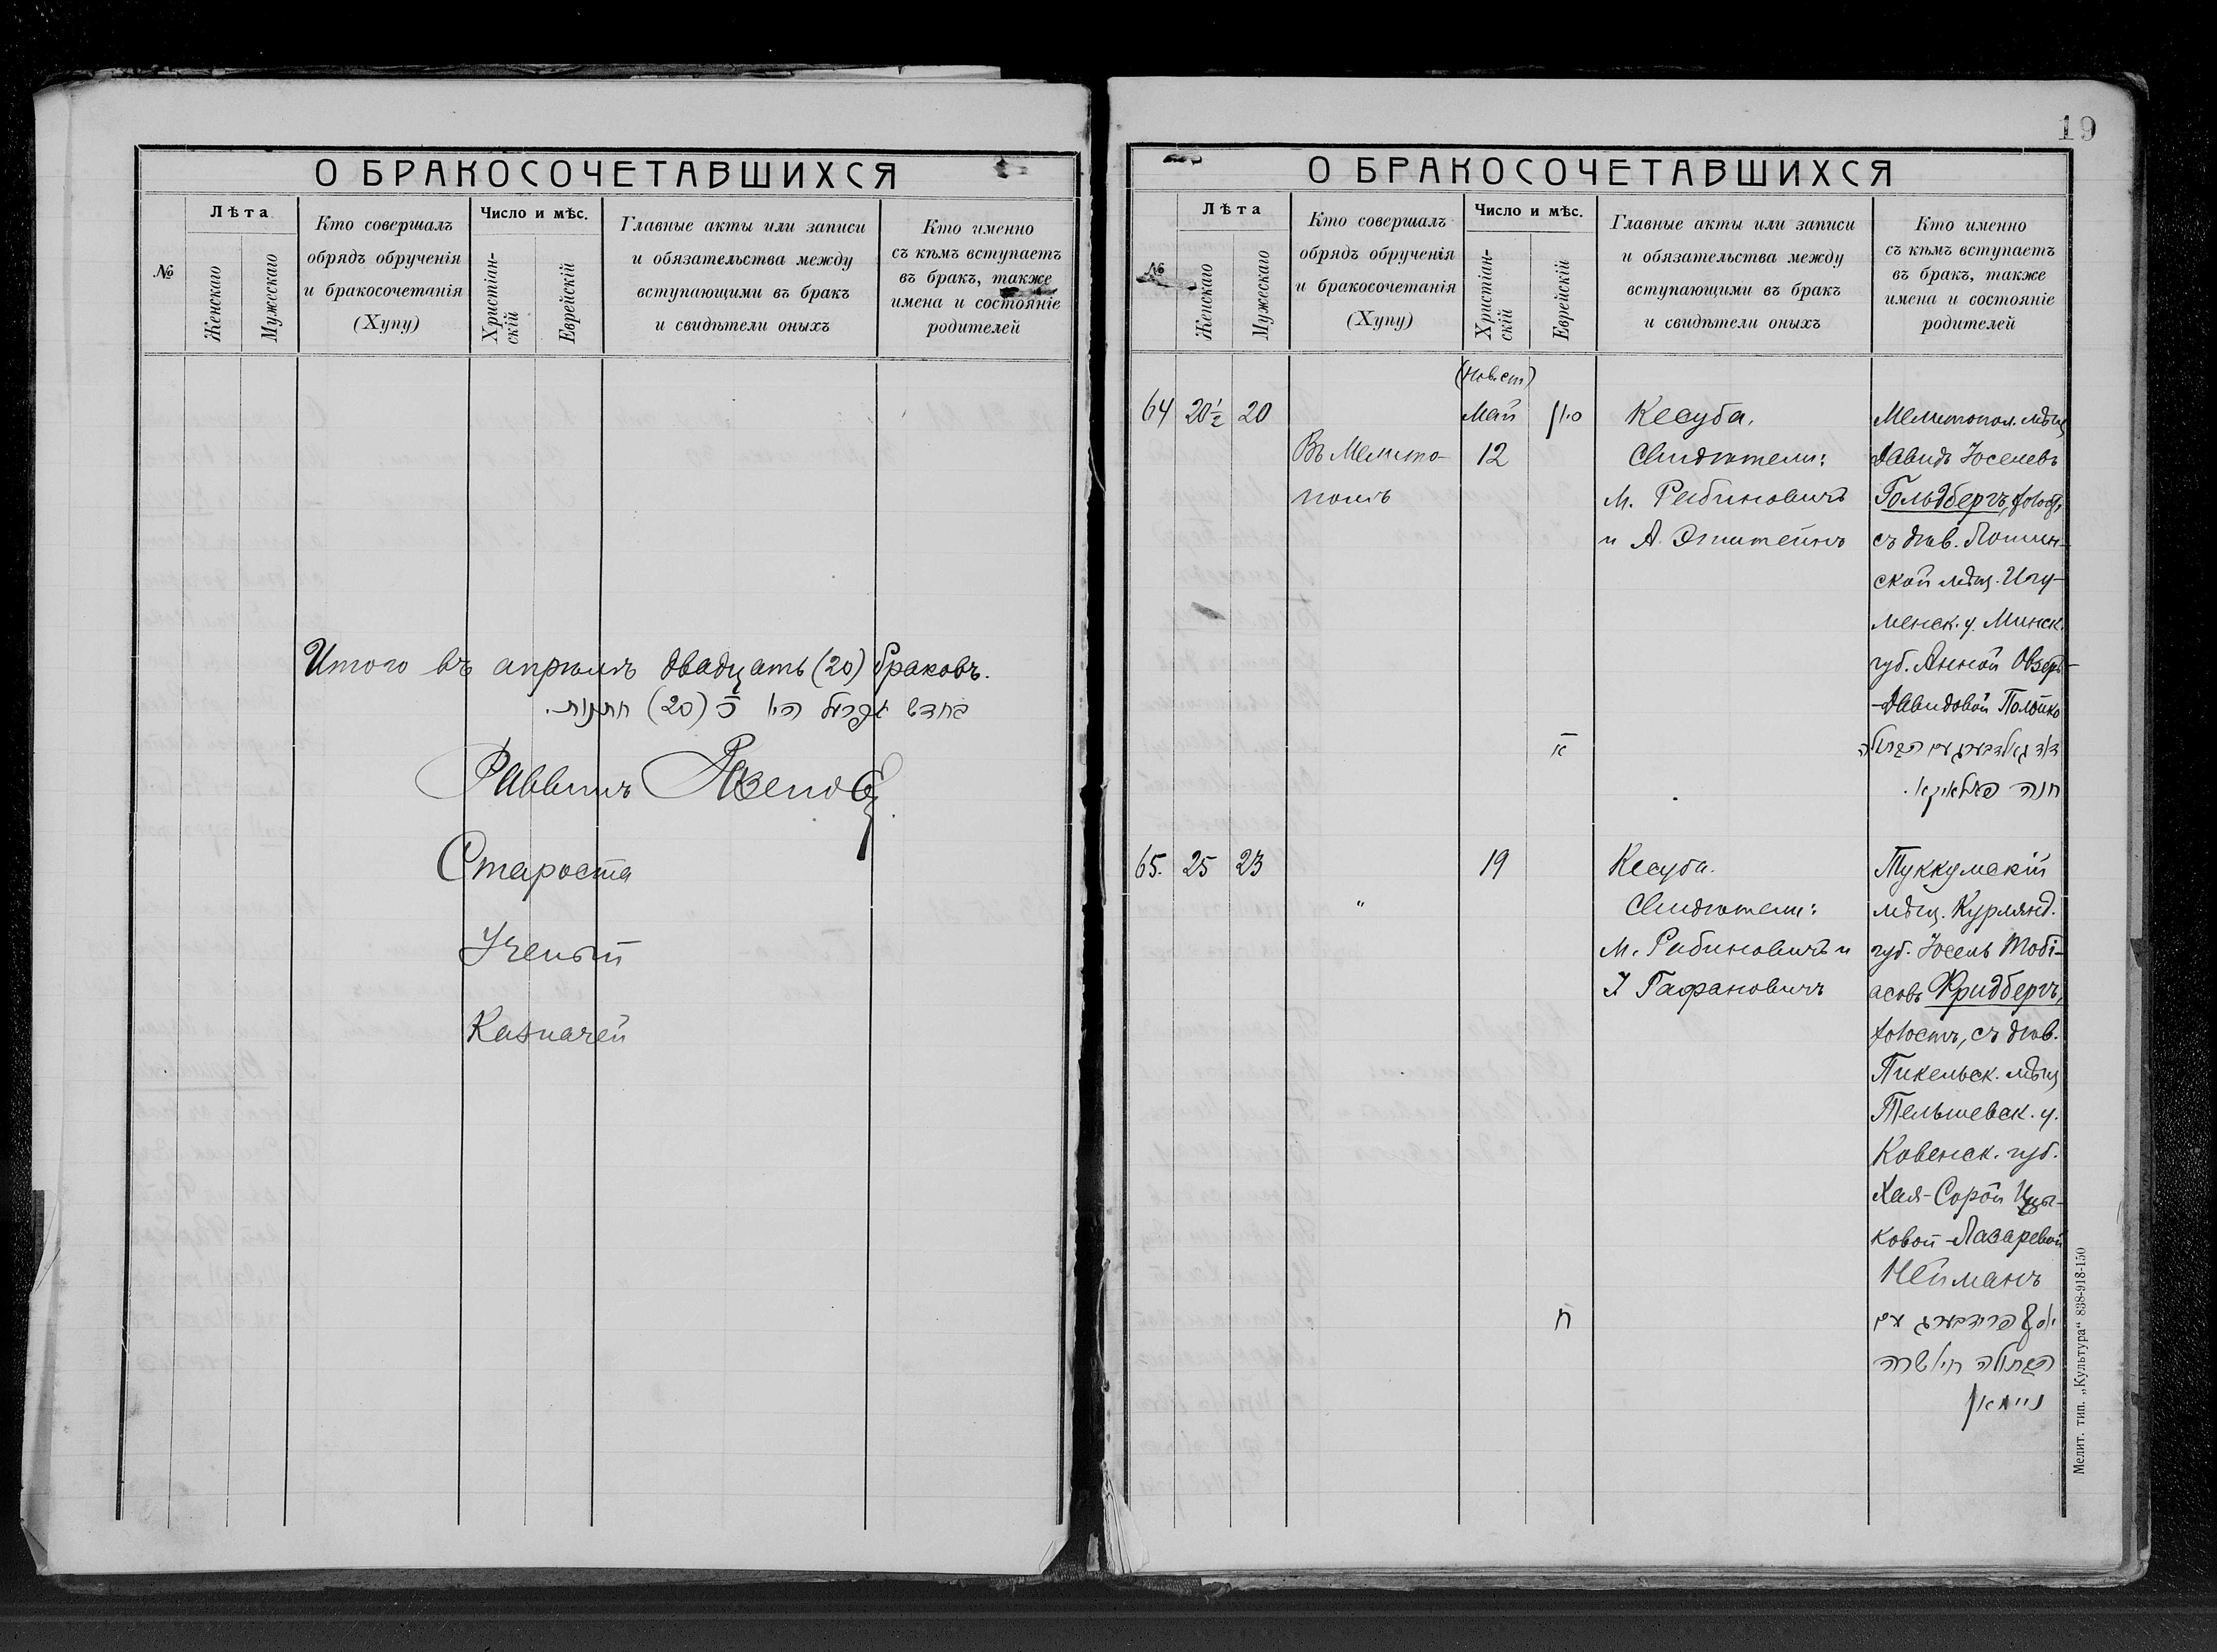 О БРАКОСОЧЕТАВШИХСЯ
№
Лѣта
Женскаго
Мужескаго
Кто совершалъ
обрядъ обрученія
и бракосочетанія
(Хупу)
Число и мѣс.
Христіан-
скій
Еврейскій
Главные акты или записи
и обязательства между
вступающими въ бракъ
и свидѣтели оныхъ
Кто именно
съ кѣмъ вступаетъ
въ бракъ, также
имена и состояніе
родителей
Итого въ апрѣлѣ двадцать (20) браковъ.
בחדש אפריל היו כ̄ (20) חתונות.
Раввинъ
Староста
Ученый
Казначей
19
О БРАКОСОЧЕТАВШИХСЯ
№
Лѣта
Женскаго
Мужескаго
Кто совершалъ
обрядъ обрученія
и бракосочетанія
(Хупу)
Число и мѣс.
Христіан-
скій
Еврейскій
Главные акты или записи
и обязательства между
вступающими въ бракъ
и свидѣтели оныхъ
Кто именно
съ кѣмъ вступаетъ
въ бракъ, также
имена и состояніе
родителей
(Нов. ст)
64 20½ 20
Въ Мелито-
полѣ
Май
12
סיון
א̄
Кесуба.
Свидѣтели:
М. Рабиновичъ
и А. Эпштейнъ
Мелитопол. мѣщ
Давидъ Іоселевъ
Гольдбергъ, холост.
съ дѣв.
ской мѣщ. Игу-
менск. у. Минск.
губ. Анной Овзеръ-
-Давидовой Полойко
דוד גאלדבערג עם הבתולה
חנה פאלאיקא.
65. 25 23
"
19
ח̄
Кесуба.
Свидѣтели:
М. Рабиновичъ и
І Гафановичъ
Туккумскій
мѣщ. Курлянд.
губ. Іосель Тобі-
асовъ Фридбергъ,
холостъ, съ дѣв.
Пикельск. мѣщ
Тельшевск. у.
Ковенск. губ.
Хая-Сорой Ицы-
ковой-Лазаревой
Нейманъ
יוסף פרידבערג עם
הבתולה חיה שרה
ניימאן
Мелит. тип. „Культура“ 838-918-150